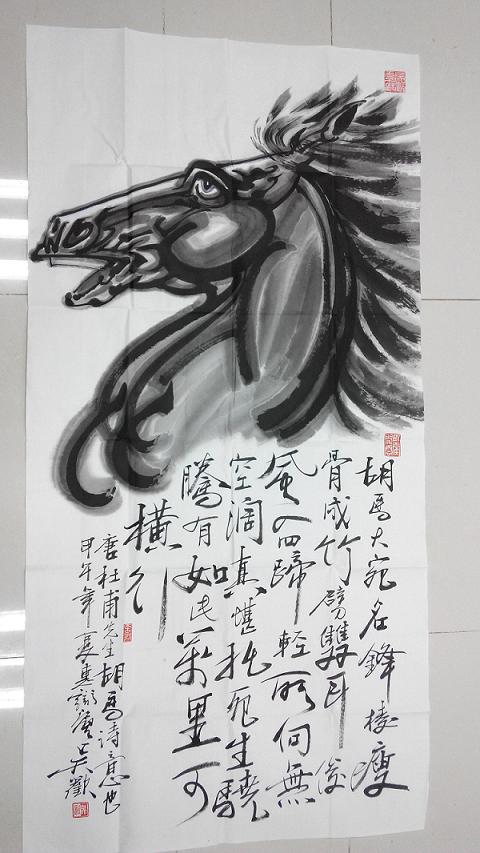 胡馬大宛名鋒棱瘦
骨成竹劈雙耳俊
風入四蹄輕所向無
空闊真堪托死生驍
騰有如此萬里可
橫行
唐杜甫先生胡馬詩意也
甲午年夏吳歡